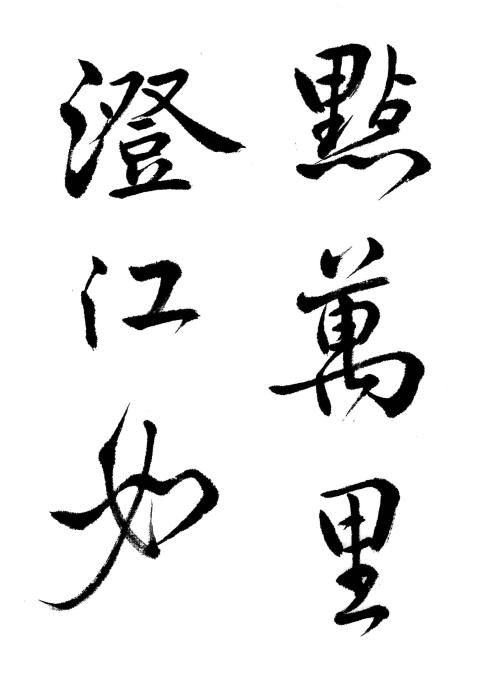 點萬里
澄江如